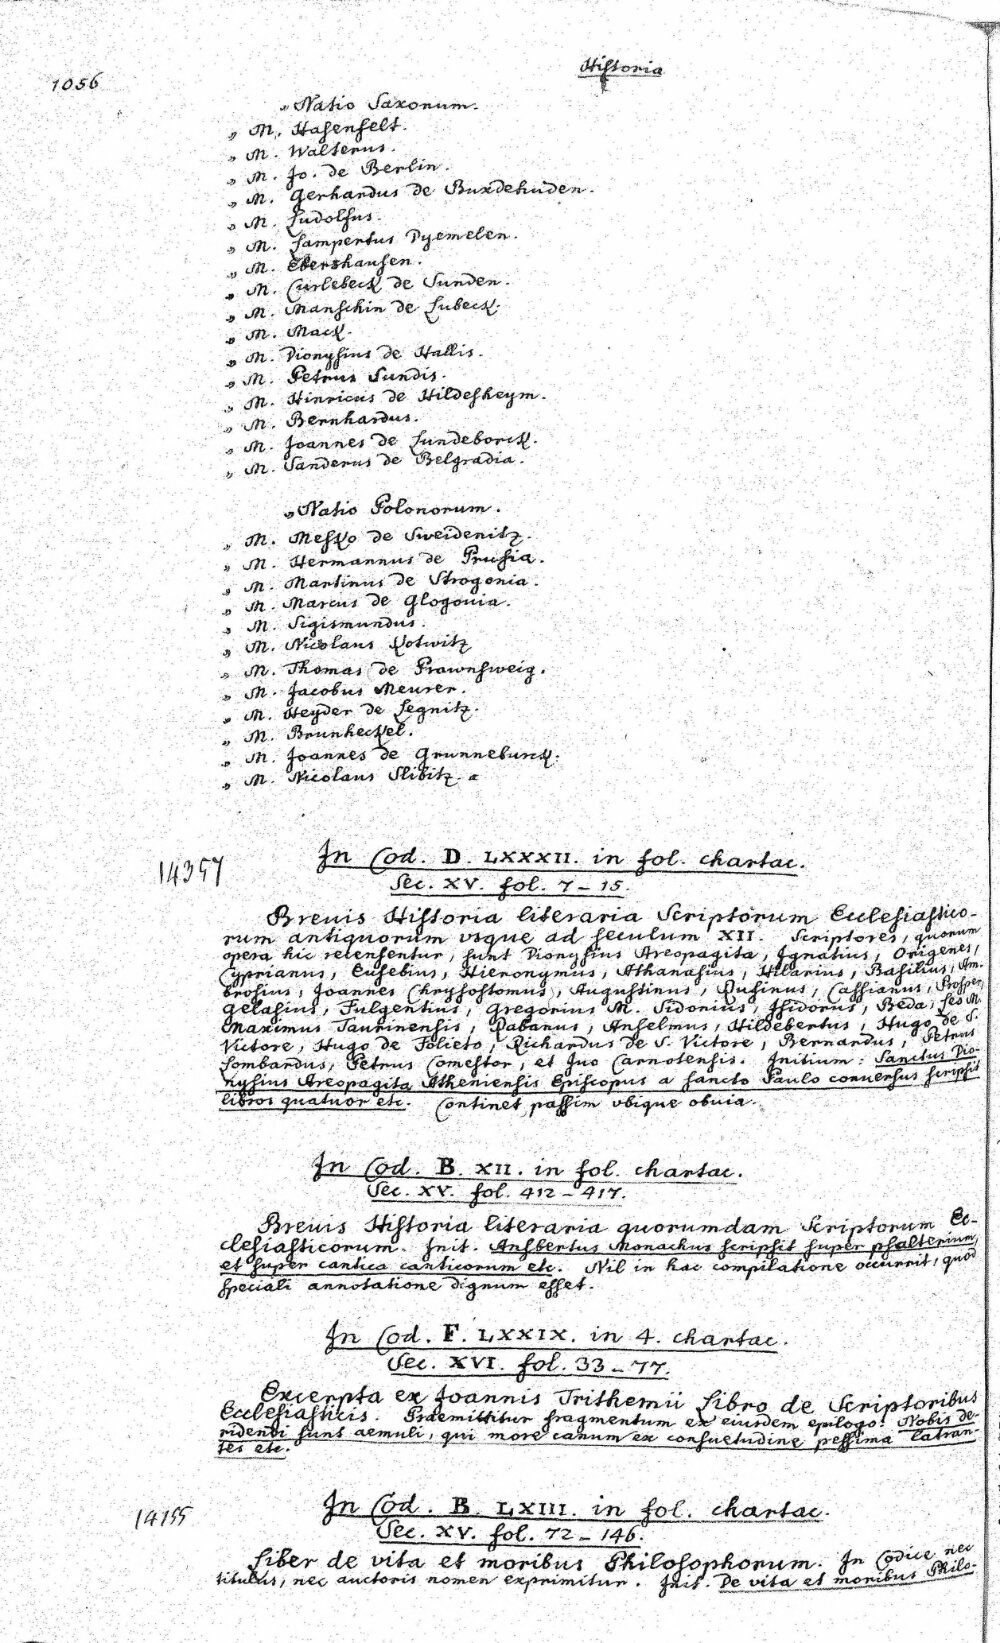 Historia
1056
„ Natio Saxonum.
„ M. Hasenfelt.
„ M. Walterus.
„ M. Jo. de Berlin.
„ M. Gerhardus de Buxdehuden.
„ M. Ludolfus.
„ M. Lampertus Dyemelen.
„ M. Ebershausen.
„ M. Curlebeck de Sunden.
„ M. Manschin de Lubeck.
„ M. Mack.
„ M. Dionysius de Hallis.
„ M. Petrus Sundis.
„ M. Hinricus de Hildesheym.
„ M. Bernhardus.
„ M. Joannes de Lundeborck.
„ M. Sanderus de Belgradia.
„ Natio Polonorum.
„ M. Mesko de Sweidenitz.
„ M. Hermannus de Prusia.
„ M. Martinus de Strogonia.
„ M. Marcus de Glogovia.
„ M. Sigismundus.
„ M. Nicolaus Kotwitz
„ M. Thomas de Prawnsweig.
„ M. Jacobus Meurer.
„ M. Heyder de Legnitz.
„ M. Brunheckel.
„ M. Joannes de Grunneburck.
„ M. Nicolaus Slibitz. “
14357
In Cod. D. LXXXII. in fol. chartac.
Sec. XV. fol. 7 - 15.
Brevis Historia literaria Scriptorum Ecclesiastico-
rum antiquorum vsque ad seculum XII. Scriptores, quorum
opera hic recensentur, sunt Dionysius Areopagita, Ignatius, Origenes,
Cyprianus, Eusebius, Hieronymus, Athanasius, Hilarius, Basilius, Am-
brosius, Joannes Chrysostomus, Augustinus, Rufinus, Cassianus, Prosper,
Gelasius, Fulgentius, Gregorius M. Sidonius, Isidorus, Beda, Leo M.
Maximus Taurinensis, Rabanus, Anselmus, Hildebertus, Hugo de S.
Victore, Hugo de Folieto, Richardus de S. Victore, Bernardus, Petrus
Lombardus, Petrus Comestor, et Juo Carnotensis. Initium: Sanctus Dio-
nysius Areopagita Atheniensis Episcopus a sancto Paulo conversus scripsit
libros quatuor etc. Continet passim vbique obvia.
In Cod. B. XII. in fol. chartac.
Sec. XV. fol. 412 - 417.
Brevis Historia literaria quorumdam Scriptorum Ec-
clesiasticorum. Init. Ansbertus Monachus scripsit super psalterium,
et super cantica canticorum etc. Nil in hac compilatione occurrit, quod
speciali annotatione dignum esset.
In Cod. F. LXXIX. in 4. chartac.
Sec. XVI. fol. 33 - 77.
Excerpta ex Joannis Trithemii Libro de Scriptoribus
Ecclesiasticis. Praemittitur fragmentum ex eiusdem epilogo: Nobis de-
ridendi sunt aemuli, qui more canum ex consuetudine pessima latran-
tes etc.
14155
In Cod. B. LXIII. in fol. chartac.
Sec. XV. fol. 72 - 146.
Liber de vita et moribus Philosophorum. In Codice nec
titulus, nec auctoris nomen exprimitur. Init. De vita et moribus Philo-